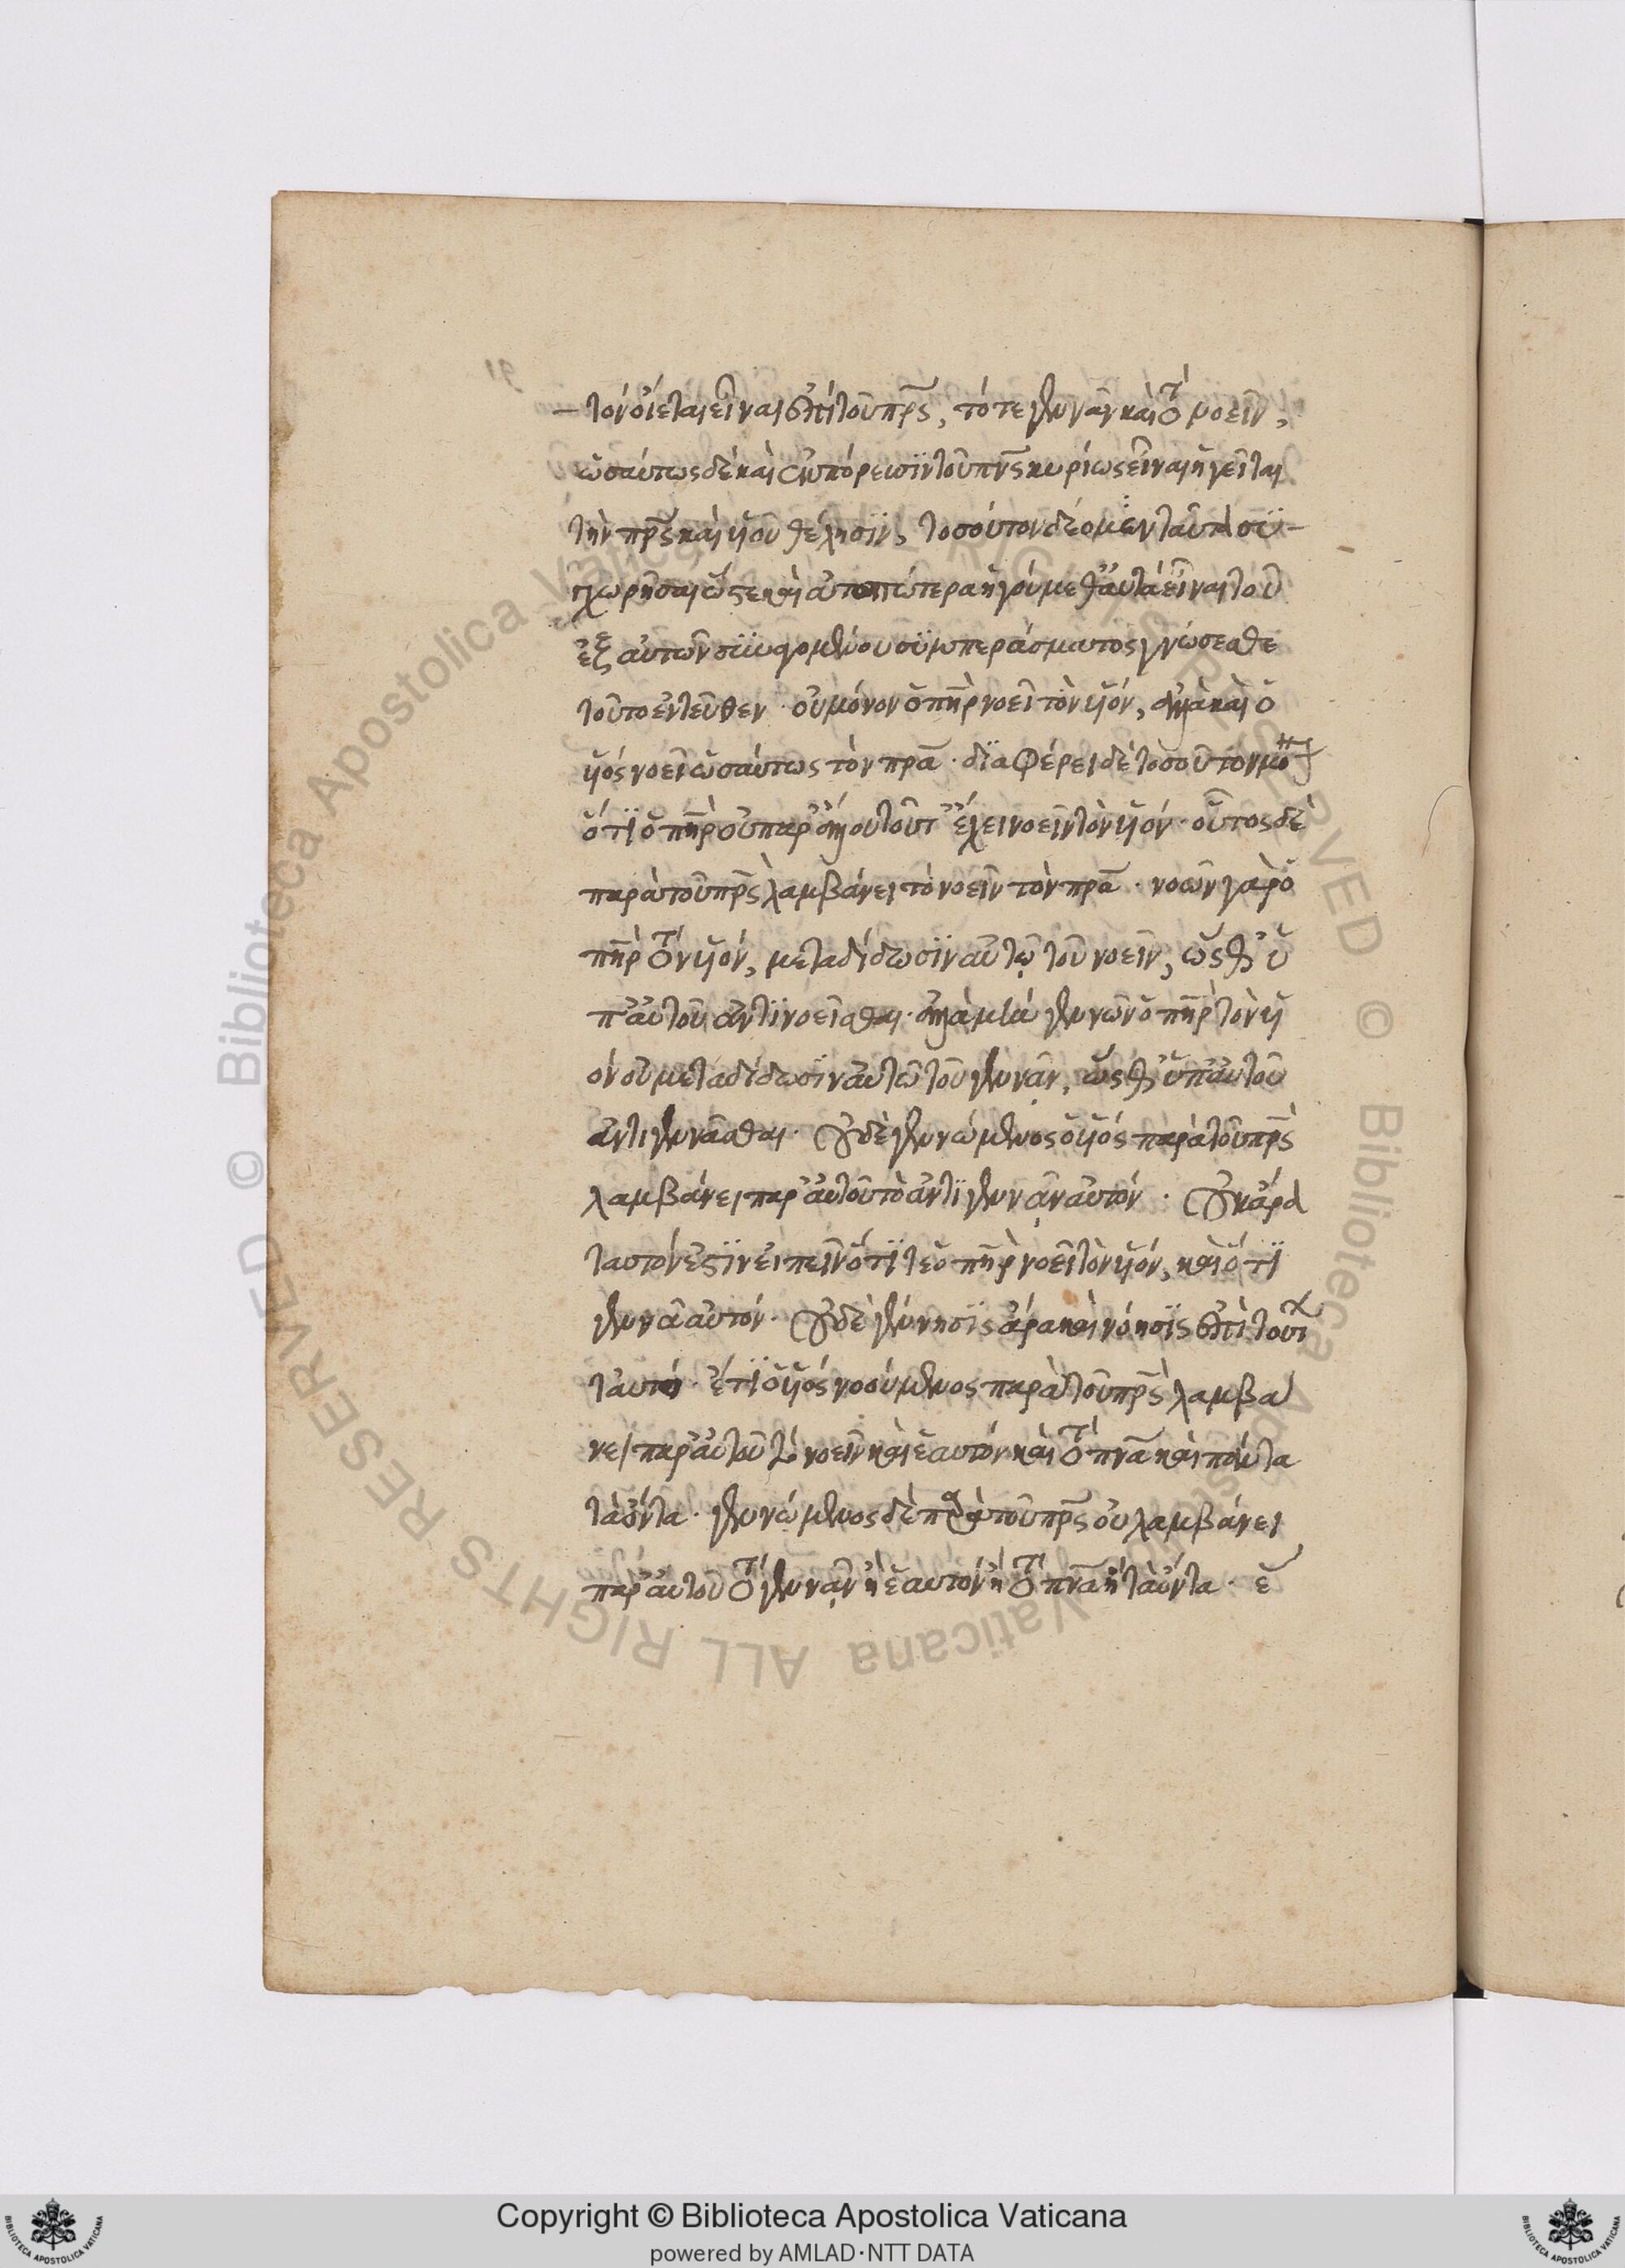 τὸν οἴεται εἶναι ἐπὶ τοῦ πρς, τό τε γεννᾶν καὶ τὸ νοεῖν,
ὡσαύτως δὲ καὶ ἐκπόρευσϊν τοῦ πνς κυρίως εἶναι ἡγεῖται
τὴν πρς καὶ υἱοῦ θέλησϊν, τοσούτου δέομεν ταῦτα συγ-
χωρῆσαι ὥστε καὶ ἀτοπώτερα ἡγούμεθ' αὐτὰ εἶναι τοῦ
ἐξ αὐτῶν συναγομένου συμπεράσματος γνώσεσθε
τοῦτο ἐντεῦθεν · οὐ μόνον ὁ πηρ νοεῖ τὸν υἱόν, ἀλλὰ καὶ ὁ
υἱός νοεῖ ὡσαύτως τὸν πρα · δϊαφέρει δὲ τοσοῦτον μόνον
ὅτϊ ὁ πηρ οὐ παρ' ἄλλου τοῦτ' ἔχει νοεῖν τὸν υἱόν · οὗτος δὲ
παρὰ τοῦ πρς λαμβάνει τὸ νοεῖν τὸν πρα · νοῶν γὰρ ὁ
πηρ τὸν υἱόν, μεταδίδωσϊν αὐτῷ τοῦ νοεῖν, ὥσθ' ὑ
π' αὐτοῦ ἀντϊνοεῖσθαι · ἀλλὰ μὴν γεννῶν ὁ πηρ τὸν υἱ
όν οὐ μεταδίδωσϊν αὐτῷ τοῦ γεννᾶν, ὥσθ' ὑπ' αὐτοῦ
ἀντιγεννᾶσθαι · οὐδὲ γεννώμενος ὁ υἱός παρὰ τοῦ πρς
λαμβάνει παρ' αὐτοῦ τὸ ἀντϊγεννᾶν αὐτόν · οὐκ ἄρα
ταὐτόν ἐστϊν εἰπεῖν ὅτϊ τε ὁ πηρ νοεῖ τὸν υἱόν, καὶ ὅτϊ
γεννᾶ αὐτόν · οὐδὲ γέννησϊς ἄρα καὶ νόησϊς ἐπὶ τούτου
ταὐτόν · ἔτϊ ὁ υἱός νοούμενος παρὰ τοῦ πρς λαμβά
νει παρ' αὐτοῦ τὸ νοεῖν καὶ ἑαυτόν καὶ τὸ πνα καὶ πάντα
τὰ ὄντα · γεννώμενος δὲ παρὰ τοῦ πρς οὐ λαμβάνει
παρ' αὐτοῦ τὸ γεννᾶν ἢ ἑαυτόν ἢ τὸ πνα ἢ τὰ ὄντα · ἔ
Copyright © Biblioteca Apostolica Vaticana
powered by AMLAD·NTT DATA